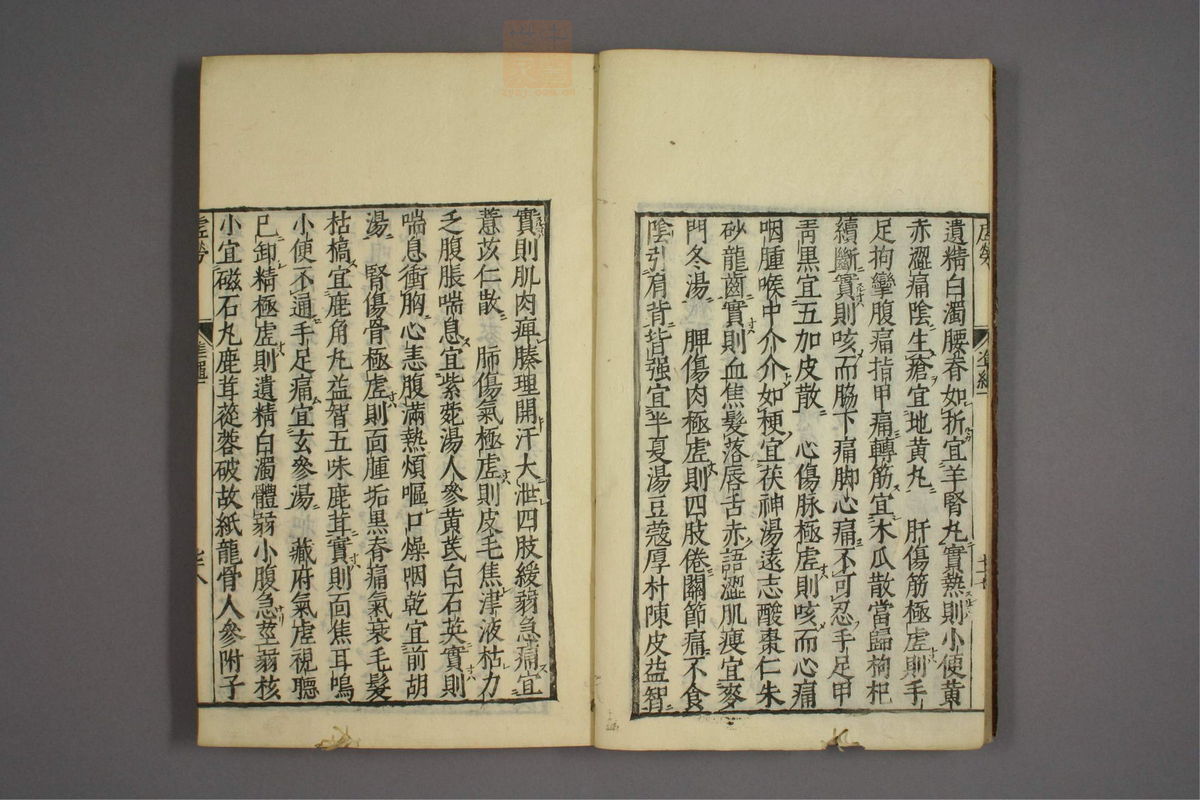 遺精白濁腰脊如折宜羊腎丸實熱則小便黃
赤澀痛陰生瘡宜地黃丸 肝傷筋極虛則手
足拘攣腹痛指甲痛轉筋宜木瓜散當歸枸杞
續斷實則咳而脇下痛脚心痛不可忍手足甲
靑黑宜五加皮散 心傷脉極虛則咳而心痛
咽腫喉中介介如梗宜茯神湯遠志酸棗仁朱
砂龍齒實則血焦髮落唇舌赤語澀肌瘦宜麥
門冬湯 脾傷肉極虛則四肢倦關節痛不食
陰引肩背皆强宜半夏湯豆蔻厚朴陳皮益智
實則肌肉痺腠理開汗大泄四肢緩弱急痛宜
薏苡仁散 肺傷氣極虛則皮毛焦津液枯力
乏腹脹喘息宜紫菀湯人參黃芪白石英實則
喘息衝胸心恚腹滿熱煩嘔口燥咽乾宜前胡
湯 腎傷骨極虛則面腫垢黑脊痛氣衰毛髮
枯槁宜鹿角丸益智五味鹿茸實則面焦耳鳴
小便不通手足痛宜玄參湯 藏府氣虛視聽
已卸精極虛則遺精白濁體弱小腹急莖弱核
小宜磁石丸鹿茸蓯蓉破故紙龍骨人參附子
虛勞